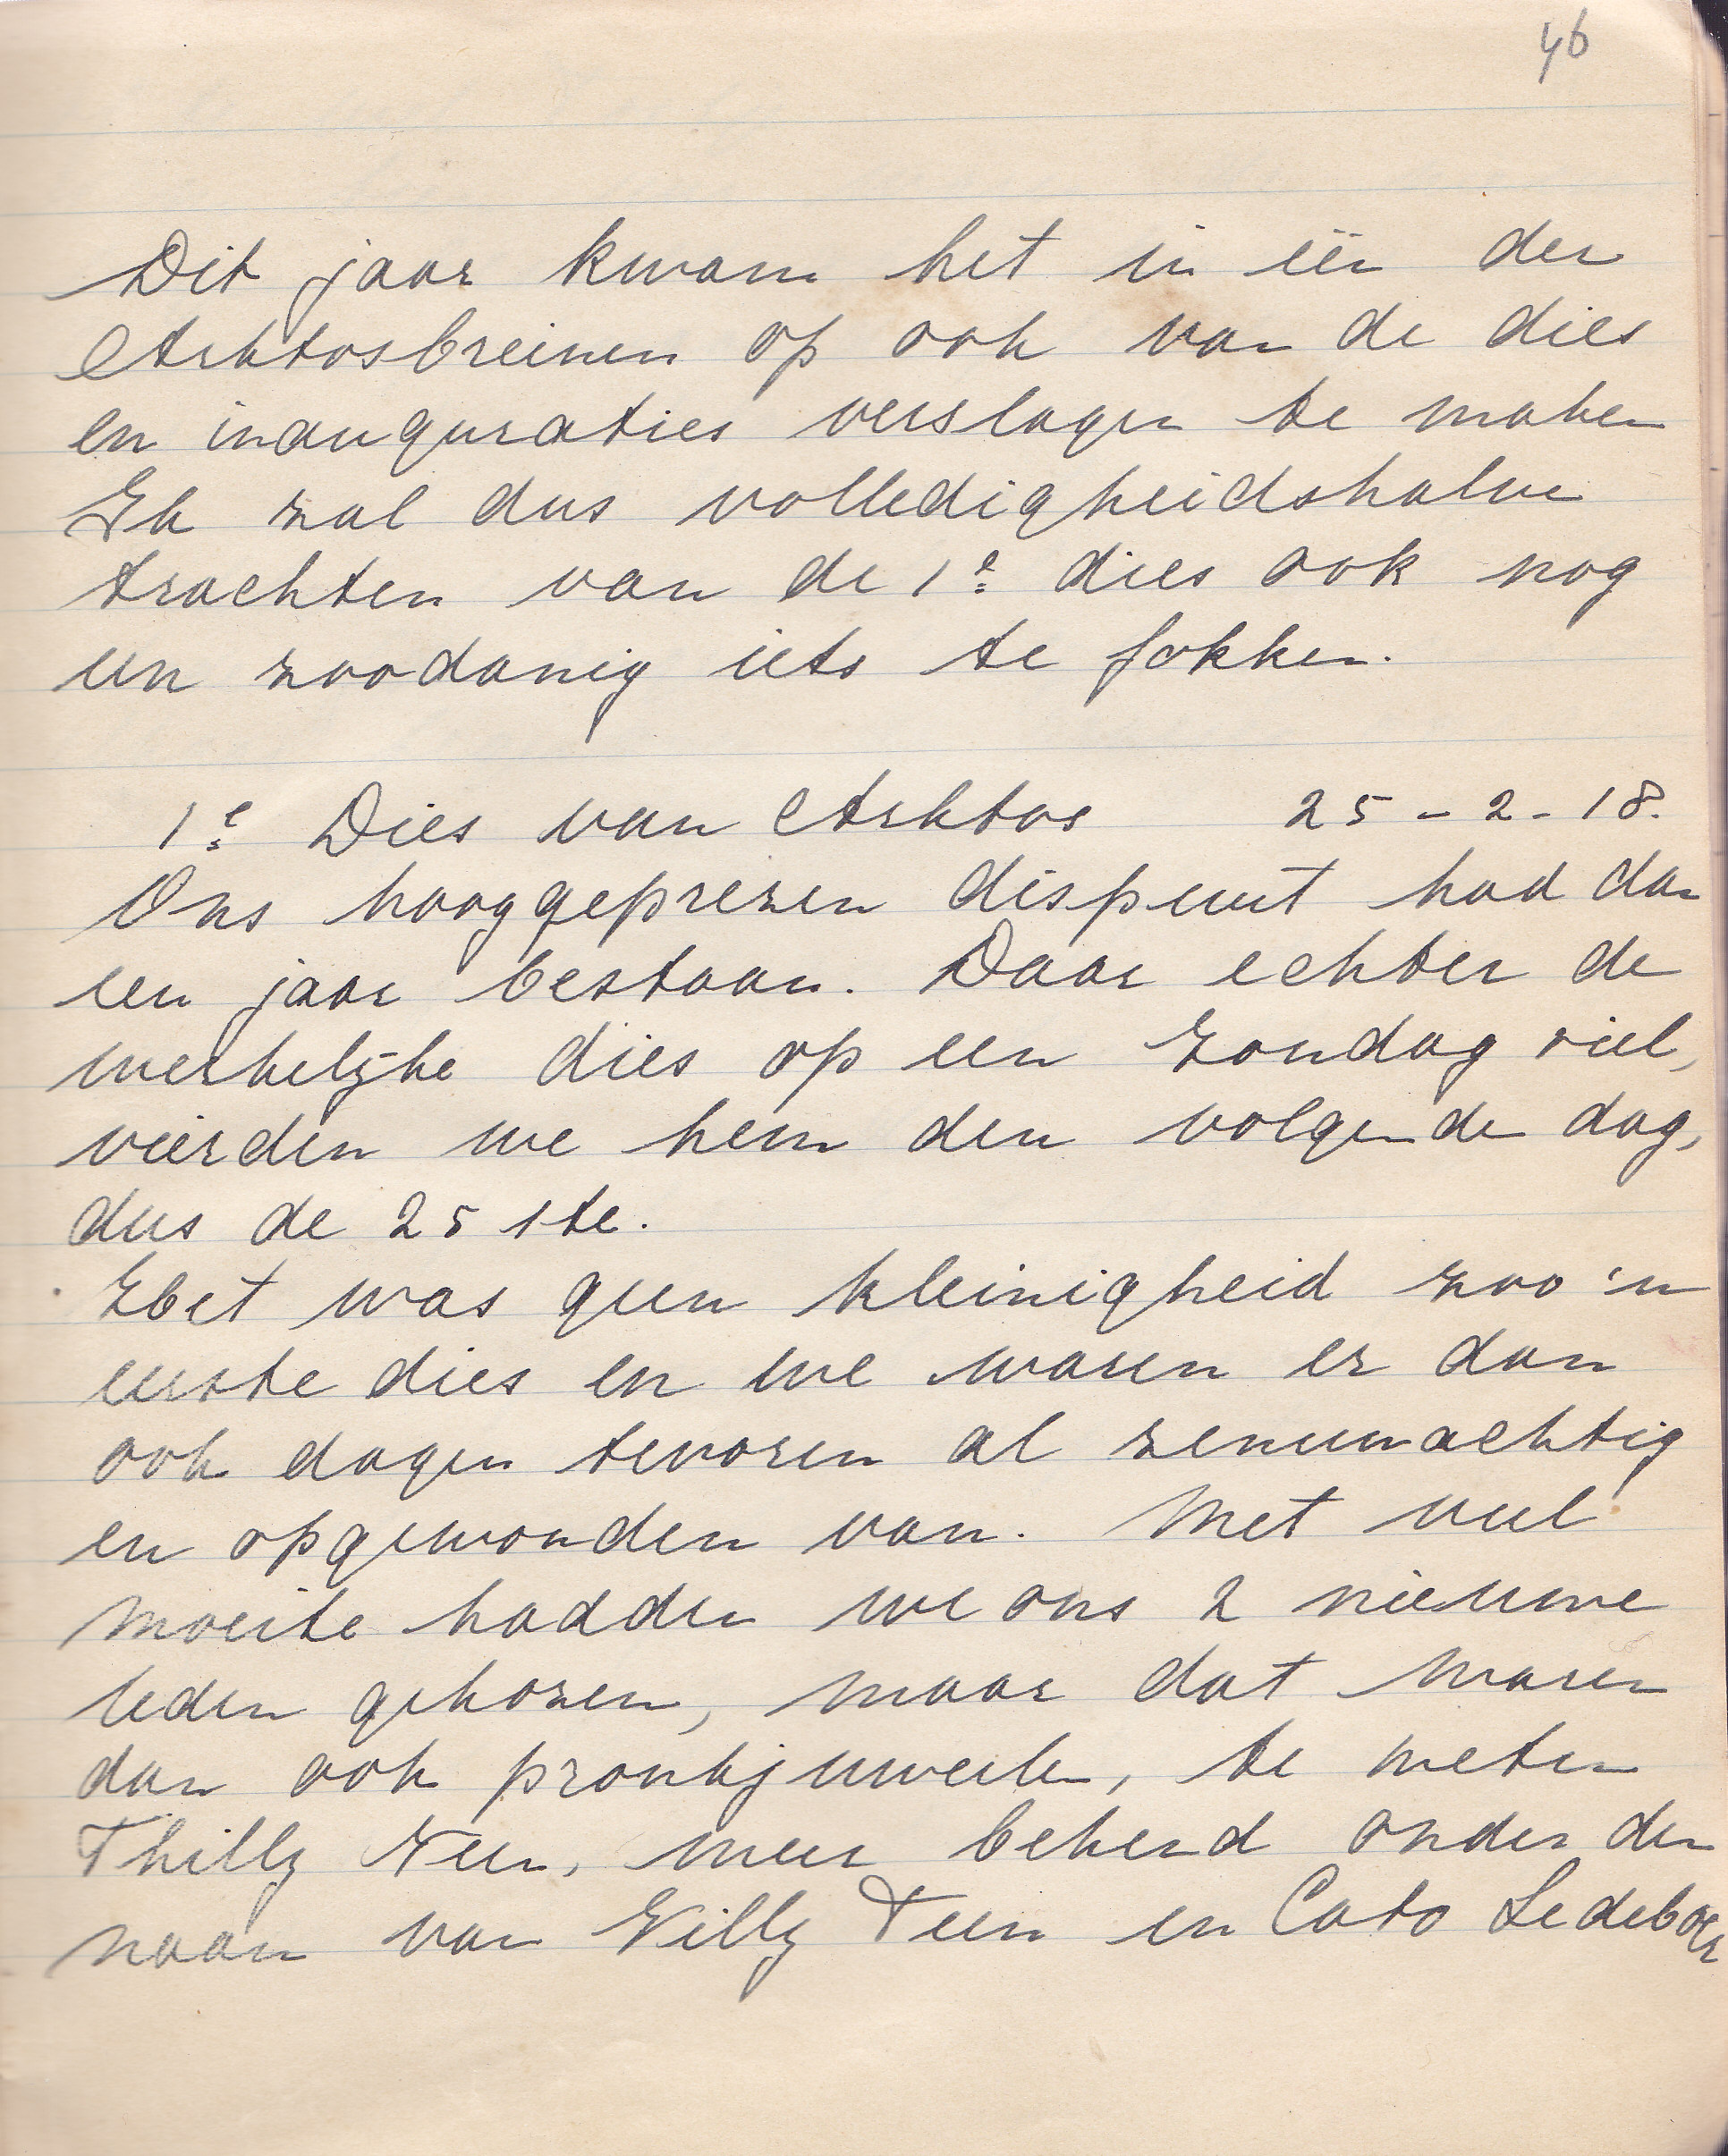 46
Dit jaar kwam het in één der
Arktosbreinen op ook van de dies
en inauguraties verslagen te maken
Ik zal dus volledigheidshalve
trachten van de 1e dies ook nog
een zoodanig iets te fokken.
1e Dies van Arktos 25-2-18.
Ons hooggeprezen dispuut had dan
een jaar bestaan. Daar echter de
werkelijke dies op een Zondag viel,
vierden we hem den volgenden dag,
dus de 25ste.
Het was geen kleinigheid zoo'n
eerste dies en we waren er dan
ook dagen tevoren al zenuwachtig
en opgewonden van. Met veel
moeite hadden we ons 2 nieuwe
leden gekozen, maar dat waren
dan ook pronkjuweelen, te weten
Thilly Veen, meer bekend onder den
naam van Villy Teen en Cato Ledeboer